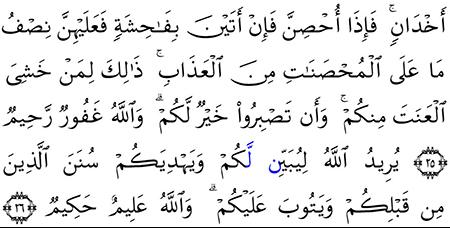 أَخْدَانٍۚ فَإِذَآ أُحْصِنَّ فَإِنْ أَتَيْنَ بِفَـٰحِشَةٍ فَعَلَيْهِنَّ نِصْفُ
مَا عَلَى ٱلْمُحْصَنَـٰتِ مِنَ ٱلْعَذَابِۚ ذَٰلِكَ لِمَنْ خَشِىَ
ٱلْعَنَتَ مِنكُمْۚ وَأَن تَصْبِرُوا۟ خَيْرٌ لَّكُمْۗ وَٱللَّهُ غَفُورٌ رَّحِيمٌ
﴿٢٥﴾ يُرِيدُ ٱللَّهُ لِيُبَيِّنَ لَكُمْ وَيَهْدِيَكُمْ سُنَنَ ٱلَّذِينَ
مِن قَبْلِكُمْ وَيَتُوبَ عَلَيْكُمْۗ وَٱللَّهُ عَلِيمٌ حَكِيمٌ ﴿٢٦﴾